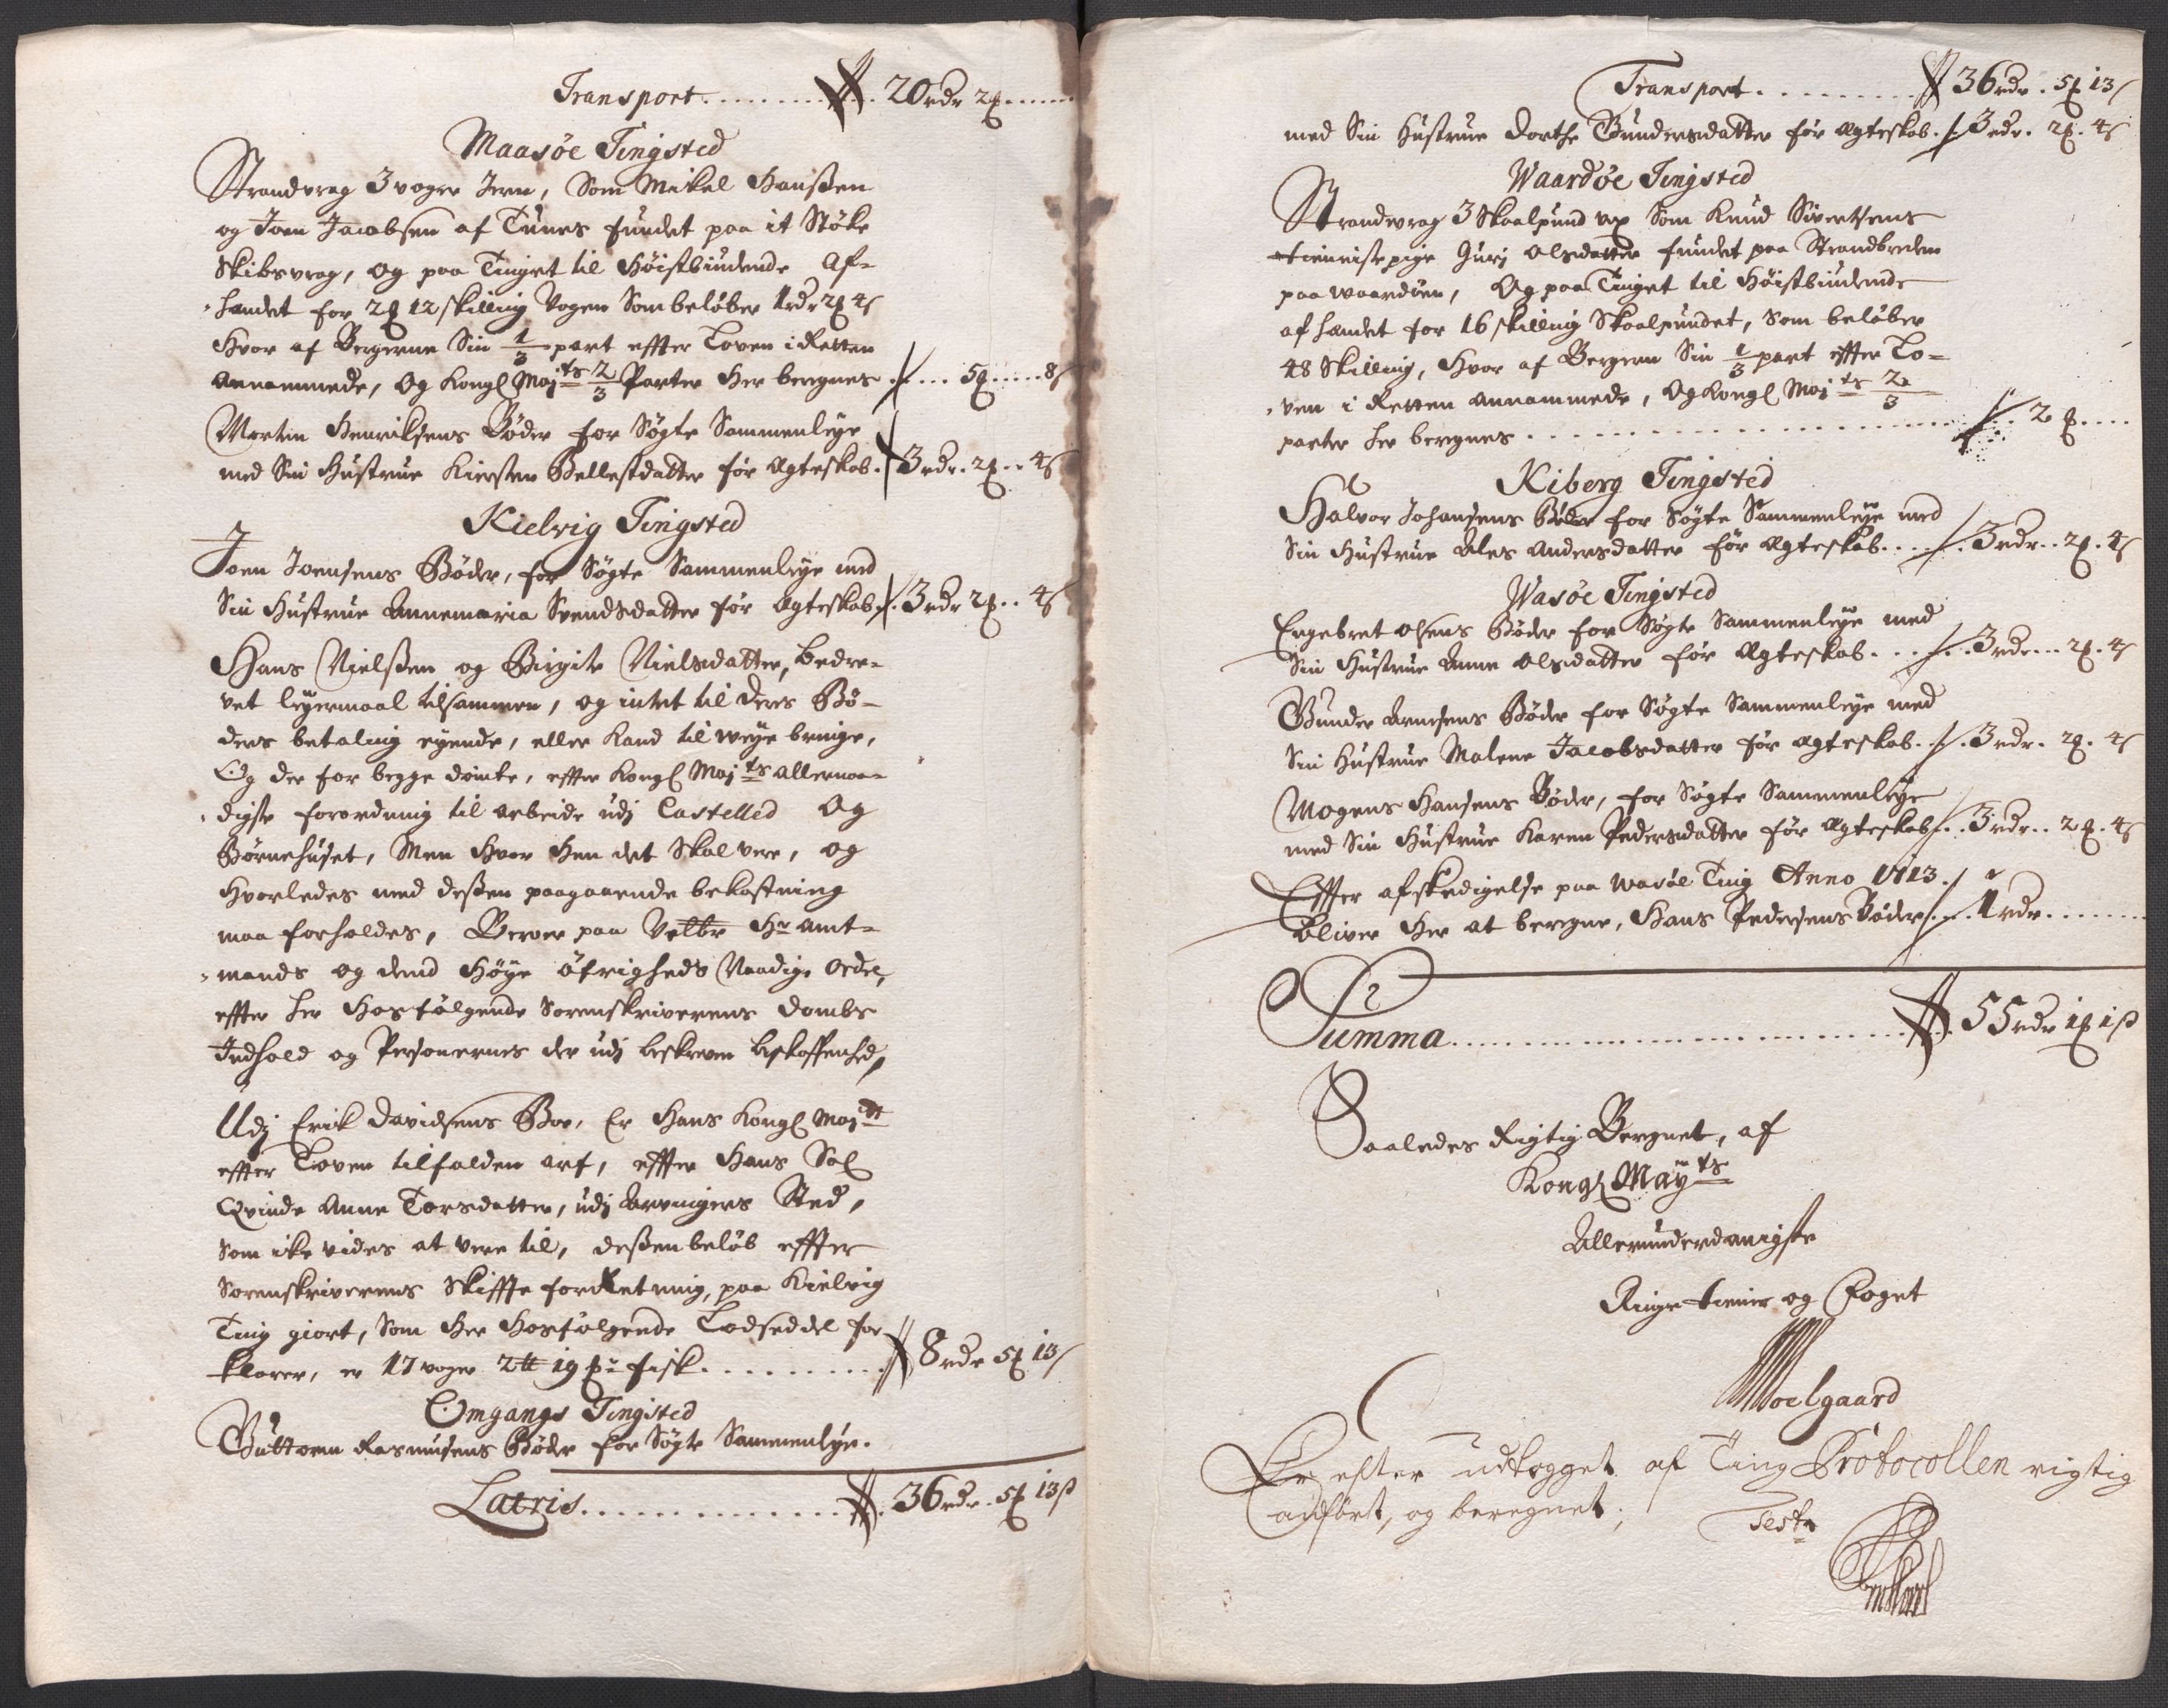 Transport . . . . . . . . 20 rdr 2 ℔ . . . .
Maasøe Tingsted
Strandvrag 3 voger Jern, Som Mikel Hanßen
og Joen Jacobsen af Tunes fundet paa it Støke
Skibsvrag, og paa Tinget til Høistbiudende Af-
hændet for 2 ℔ 12 skilling Vogen Som beløber 1 rdr 2 ℔ 4 s
Hvor af Bergerne Sin 1/3 part effter Loven i Retten
Annammede, Og Kongl Maj:ts 2/3 Parter Her beregnes . . . 5 ℔ . . . . 8 s
Morten Henriksens Bøder for Søgte Sammenleye
med Sin Hustrue Kiersten Pellesdatter før Ægteskab . 3 rdr . 2 ℔ . . 4 s
Kielvig Tingsted
Joen Joensens Bøder, for Søgte Sammenleye med
Sin Hustrue Annemaria Svendsdatter før Ægteskab . 3 rdr 2 ℔ . . 4 s
Hans Nielßen og Birgite Nielsdatter, bedre-
vet leyermaal tilsammen, og intet til deres Bø-
ders betaling eyende, eller kand til weye bringe,
Og der for begge dømte, effter Kongl Maj:ts allernaa-
digste forordning til arbeide udj Castelled Og
Børnehuset, Men Hvor Hen det Skal vere, og
Hvorledes med deßen paagaaende bekostning
maa forholdes, Beroer paa Velbr Hr Amt-
mands og dend Høye Øfrigheds Naadige Ordre,
effter her Hosfølgende Sorenskriverens Dombs
Indhold og Personernes der udj beskreven beskaffenhed,
Udj Erik Davidsens Boe, Er Hans Kongl Maj:tt
effter Loven tilfalden arf, effter Hans Sal
Qvinde Anne Torsdatter, udj Arvingers Sted,
Som ike vides at vere til, deßen beløb effter
Sorenskriverens Skiffte forretning, paa Kielvig
Ting giort, Som Her Hosfølgende Lodseddel for
klarer, er 17 voger 2 ℔ 19 ß: fisk . . . . . . . . 8 rdr 5 ℔ 13 s
Omgangs Tingsted
Guttorm Rasmusens Bøder for Søgte Sammenleye.
Latris . . . . . . . . . . . . 36 rdr . 5 ℔ 13 ß
Transport . . . . . . . . . 36 rdr . 5 ℔ 13 s
med Sin Hustrue Dorthe Gundersdatter før Ægteskab . 3 rdr . 2 ℔ . 4 s
Waardøe Tingsted
Strandvrag 3 Skaalpund vox Som Knud Sivertsens
tieniste pige Gurj Olsdatter fundet paa Strandbreden
paa Waardøen, Og paa Tinget til Høistbiudende
afhændet for 16 skilling Skaalpundet, Som beløber
48 Skilling, Hvor af Bergeren Sin 1/3 part effter Lo-
ven i Retten annammede, Og Kongl Maj:ts 2/3
parter her beregnes . . . . . . . . . . . . . . . . 2 ℔ . . . .
Kiberg Tingsted
Halvor Johansens Bøder for Søgte Sammenleye med
Sin Hustrue Ales Andersdatter før Ægteskab . . . . 3 rdr . . 2 ℔ . 4 s
Wasøe Tingsted
Engebret Olsens Bøder for Søgte Sammenleye med
Sin Hustrue Anne Olsdatter før Ægteskab . . . . . 3 rdr . . . 2 ℔ . 4 s
Gunder Arnesens Bøder for Søgte Sammenleye med
Sin Hustrue Malene Jacobsdatter før Ægteskab . . 3 rdr . 2 ℔ . 4 s
Mogens Hansens Bøder, for Søgte Sammenleye
med Sin Hustrue Karen Pedersdatter før Ægteskab . . 3 rdr . . 2 ℔ . 4 s
Effter afskedigelse paa Wasøe Ting Anno 1713.
bliver Her at beregne, Hans Pedersens Bøder . . 1 rdr . . . . . .
Summa . . . . . . . . . . . . . . . . 55 rdr 1 ℔ 1 ß
Saaledes Rigtig Beregnet, af
Kongl Mayts
Allerunderdanigste
Ringe tiener og Foget
Moelgaard
Er efter udtogget af Ting Protocollen rigtig
anført, og beregnet;
Test